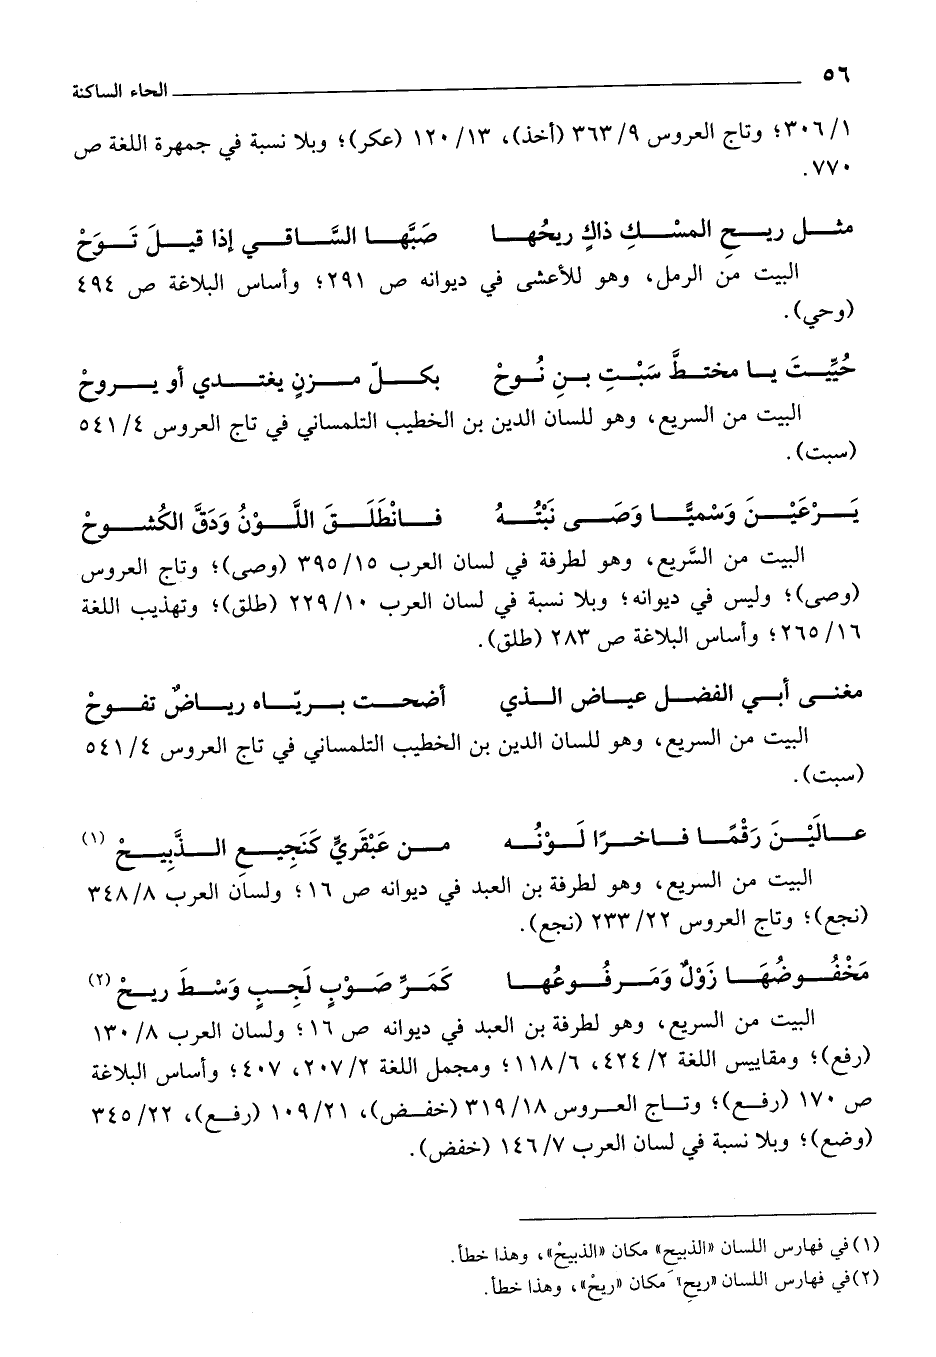 ٥٦
الحاء الساكنة
١/ ٣٠٦؛ وتاج العروس ٩/ ٣٦٣ (أخذ)، ١٣/ ١٢٠ (عكر)؛ وبلا نسبة في جمهرة اللغة ص
٧٧٠.
مثـــل ريـــحِ المسْـــكِ ذاكٍ ريحُهـــا صَبَّهـــا السَّـــاقـــي إذا قيـــلَ تَـــوَحْ
البيت من الرمل، وهو للأعشى في ديوانه ص ٢٩١؛ وأساس البلاغة ص ٤٩٤
(وحي).
حُيِّيـــتَ يـــا مختـــطَّ سَبْـــتِ بـــنِ نُـــوحْ بكـــلّ مـــزنٍ يغتـــدي أو يـــروحْ
البيت من السريع، وهو للسان الدين بن الخطيب التلمساني في تاج العروس ٤/ ٥٤١
(سبت).
يَـــرْعَيْـــنَ وَسْميًّـــا وَصَـــى نَبْتُـــهُ فـــانْطَلَـــقَ اللَّـــوْنُ وَدَقَّ الكُشـــوحْ
البيت من السَّريع، وهو لطرفة في لسان العرب ١٥/ ٣٩٥ (وصى)؛ وتاج العروس
(وصى)؛ وليس في ديوانه؛ وبلا نسبة في لسان العرب ١٠/ ٢٢٩ (طلق)؛ وتهذيب اللغة
١٦/ ٢٦٥؛ وأساس البلاغة ص ٢٨٣ (طلق).
مغنـــى أبـــي الفضـــل عيـــاض الـــذي أضحـــت بـــريّـــاه ريـــاضٌ تفـــوحْ
البيت من السريع، وهو للسان الدين بن الخطيب التلمساني في تاج العروس ٤/ ٥٤١
(سبت).
عـــالَيْـــنَ رَقْمًـــا فـــاخـــرًا لَـــوْنُـــه مـــن عَبْقَريٍّ كَنَجِيـــعِ الـــذَّبِيـــحْ (١)
البيت من السريع، وهو لطرفة بن العبد في ديوانه ص ١٦؛ ولسان العرب ٨/ ٣٤٨
(نجع)؛ وتاج العروس ٢٢/ ٢٣٣ (نجع).
مَخْفُـــوضُهَـــا زَوْلٌ وَمَـــرفُـــوعُهـــا كَمَـــرِّ صَـــوْبٍ لَجِـــبٍ وَسْـــطَ ريـــحْ (٢)
البيت من السريع، وهو لطرفة بن العبد في ديوانه ص ١٦؛ ولسان العرب ٨/ ١٣٠
(رفع)؛ ومقاييس اللغة ٢/ ٤٢٤، ٦/ ١١٨؛ ومجمل اللغة ٢/ ٢٠٧، ٤٠٧؛ وأساس البلاغة
ص ١٧٠ (رفـــع)؛ وتـــاج العـــروس ١٨/ ٣١٩ (خفـــض)، ٢١/ ١٠٩ (رفـــع)، ٢٢/ ٣٤٥
(وضع)؛ وبلا نسبة في لسان العرب ٧/ ١٤٦ (خفض).
(١) في فهارس اللسان «الذبيحِ» مكان «الذبيحْ»، وهذا خطأ.
(٢) في فهارس اللسان «ريحِ» مكان «ريحْ»، وهذا خطأ.